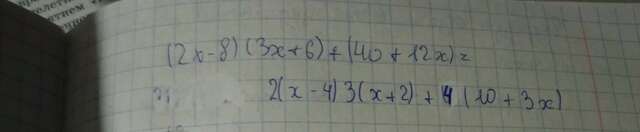 (2x-8)(3x+6)+(40+12x)=
2(x-4)3(x+2)+4(10+3x)